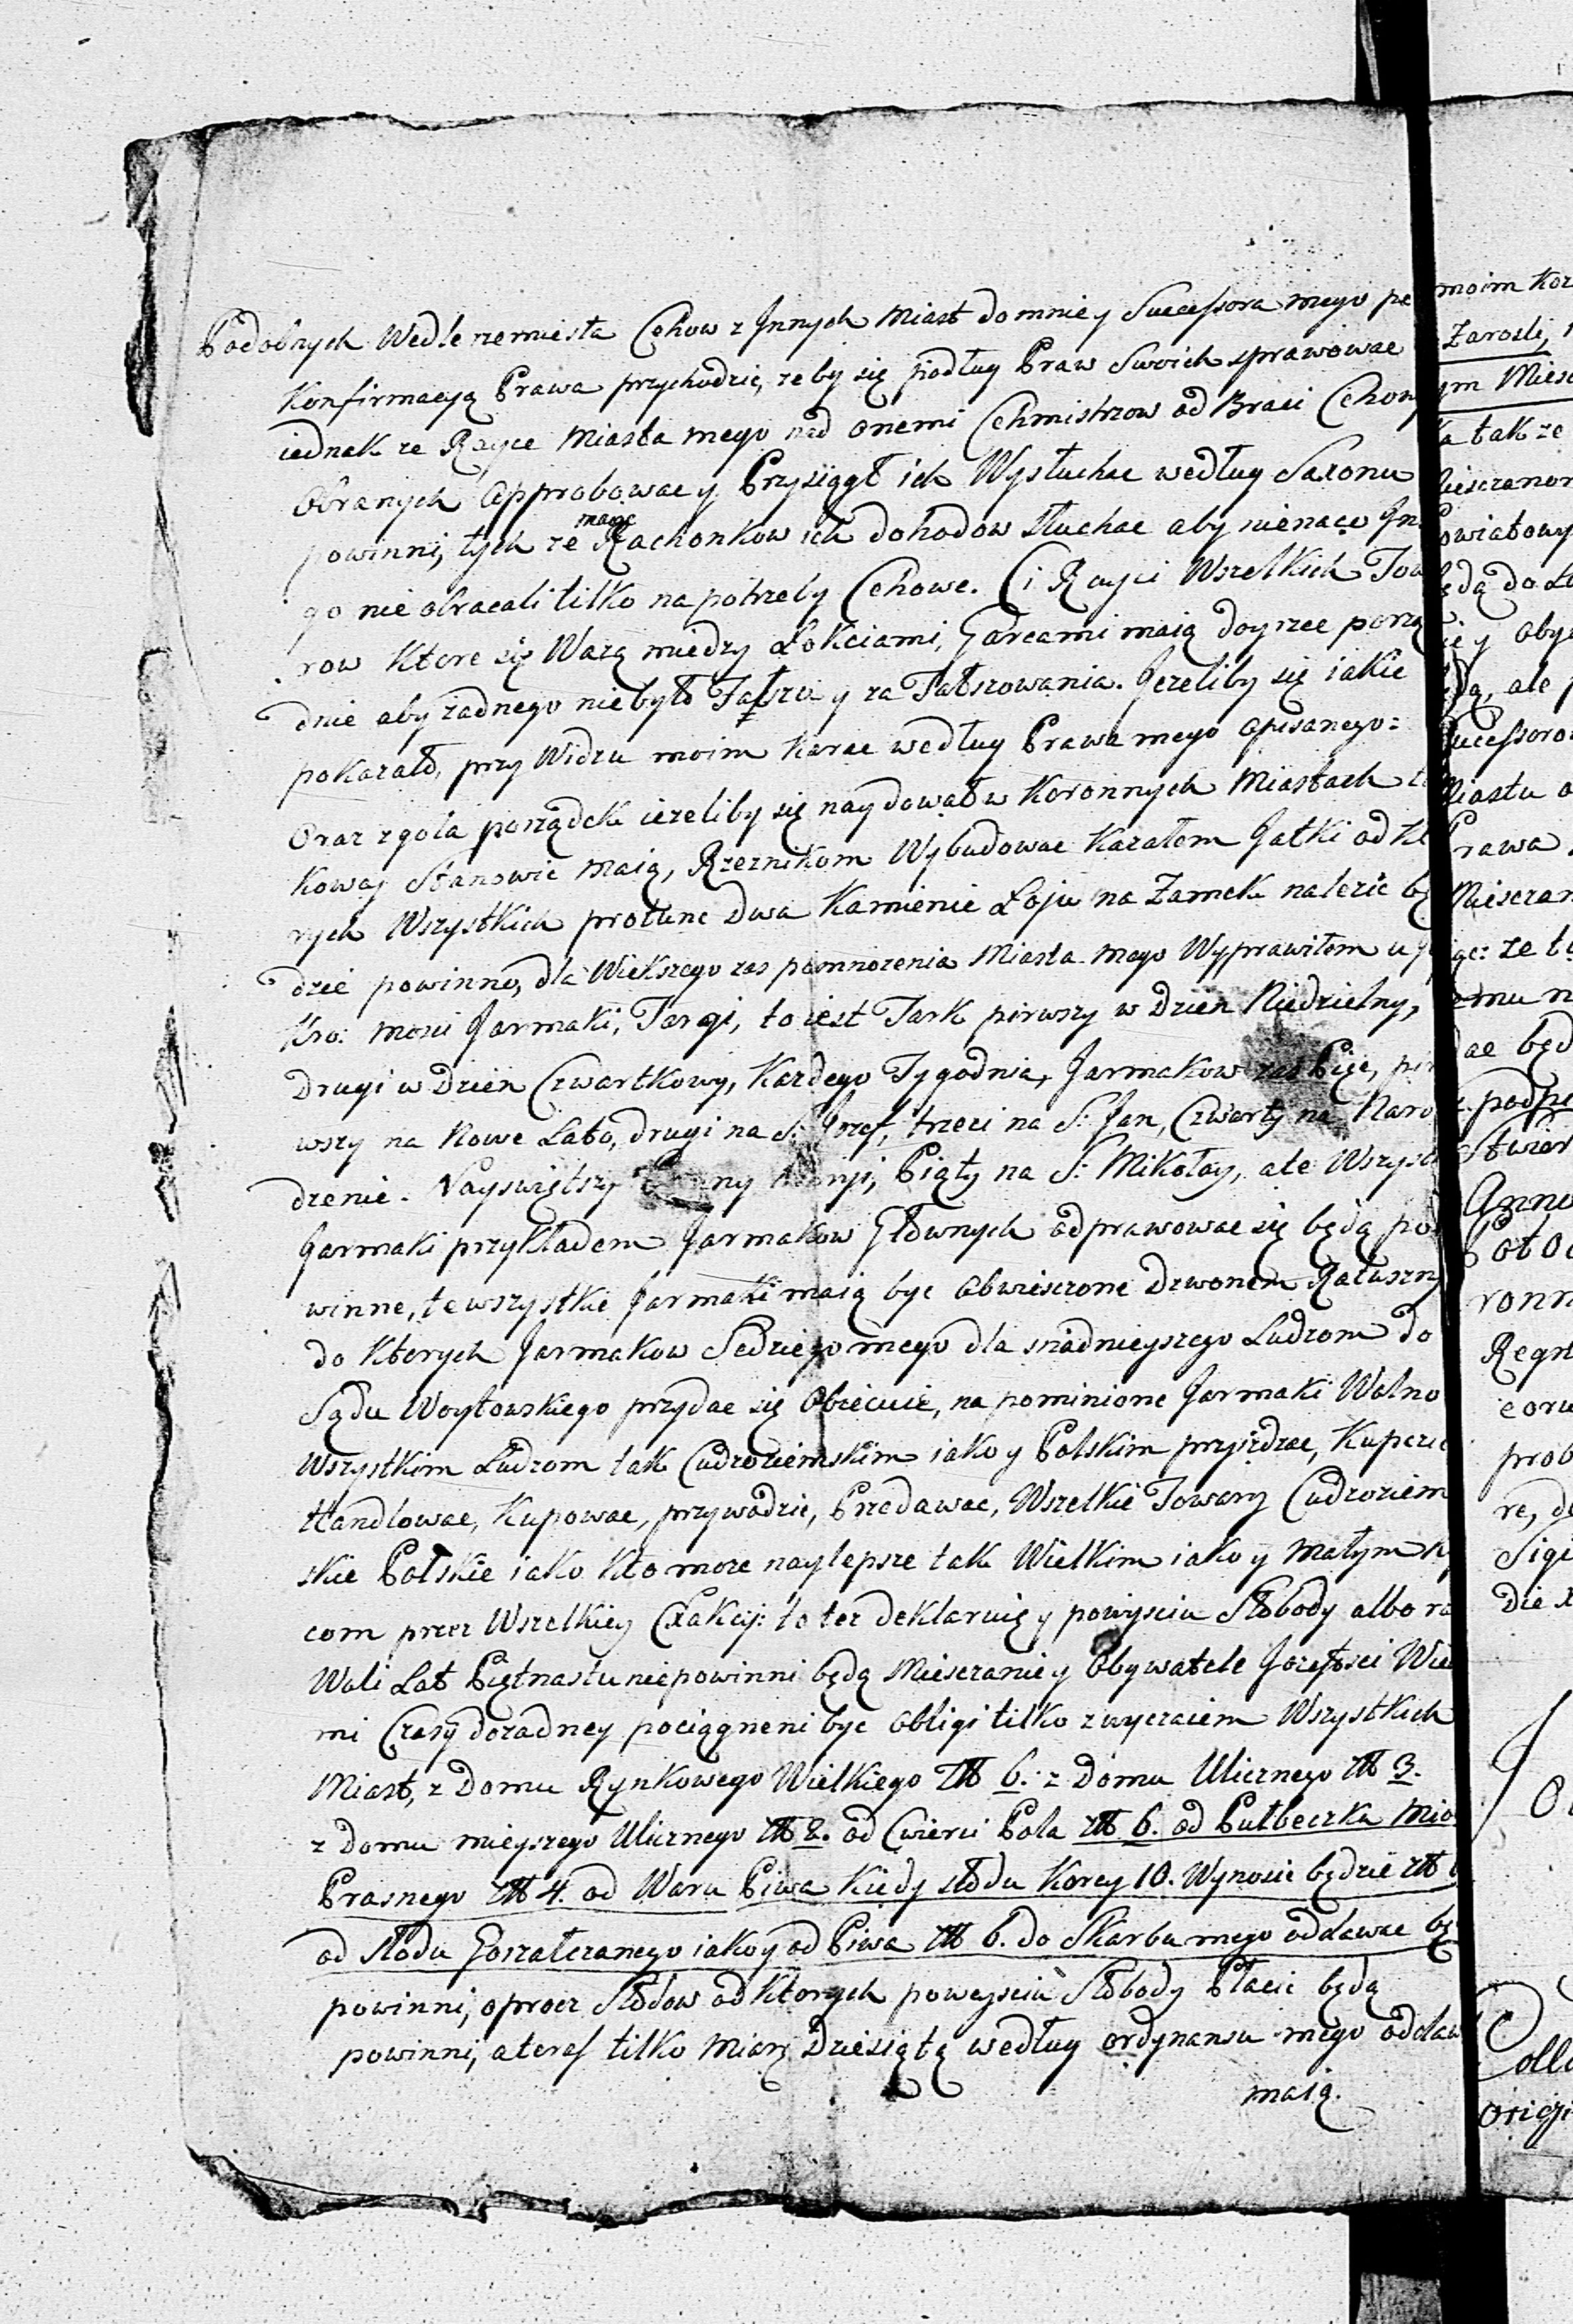 Podobnych Wedle rzemiesła Cehow z Jnnych Miast do mnie y Successora mego po
Konfirmacyą Prawa przychodzić, ze by się podług Praw Swoich sprawowac
iednak ze Rayce Miasta mego nad onemi Cehmistrzow od Braci Cehow
Obranych Approbowac y Przysiągł ich Wysłuchac według Saxonu
powinni, tych ze maiąc Rachonkow ich dohodow słuchac aby nienaco Jn
go nie obracali tilko na potrzeby Cehowe. Ci Rayci Wszelkich Tow
row Ktore się Warzą miedzy Łokciami, Garcami maią doyrzec porzą
dnie aby żadnego niebyło Fałszu y za Fałszowania. Jezeliby się iakie
pokazało, przy Widzu moim karac według Prawa mego opisanego:
Oraz zgoła porządek iezeliby się naydował w Koronnych Miastach t
kowąy Stanowic maią, Rzeznikom Wybudowac Kazałem Jatki od Kt
rych Wszystkich protunc Dwa Kamienie Łoju na Zamek nalezic bę
dzie powinno, dla Wiekszego zas pomnozenia Miasta mego Wyprawiłem u J
Kro: Mosci Jarmaki, Targi, to iest Tark pirwszy w Dzien Niedzielny,
Drugi w Dzien Czwartkowy, Kazdego Tygodnia, Jarmakow zas Pięc, pir
wszy na Nowe Lato, drugi na S: Jozef, trzeci na S: Jan, Czwarty na Naro
dzenie Nayswiętszy Panny Maryi, Piąty na S: Mikołay, ale Wszyst
Jarmaki przykładem Jarmakow Głownych odprawowac się będą po
winne, te wszystkie Jarmaki maią byc Obwieszczone Dzwonem Ratuszny
do Ktorych Jarmakow Sedziego mego dla snadnieyszego Ludzom do
Sądu Woytowskiego przydac się Obiecuie, na pominione Jarmaki Wolno
Wszystkim Ludzom tak Cudzoziemskim iako y Polskim przyiezdzac, Kupczic
Handlowac, Kupowac, przywodzic, Przedawac, Wszelkie Towary Cudzoziem
skie Polskie iako Kto moze naylepsze tak Wielkim iako y Małym K
com przez Wszelkiey Exakcij: to tez deklaruię y powyisciu Słobody albo ra
Woli Lat Piętnastu niepowinni będą Miesczanie y Obywatele Jozefosci Wie
mi Czasy do zadney pociągneni byc Obligi tilko zwyczaiem Wszystkich
Miast, z Domu Rynkowego Wielkiego zł 6. z Domu Ulicznego zł 3.
z Domu mieyszego Ulicznego zł 2. od Cwierci Pola zł 6. od Pułbeczka Mio
Prasnego zł 4. od Waru Piwa Kiedy słodu Korcy 10. Wynosic będzie zł 6
od Słodu Gorzałczanego iako y od Piwa zł 6. do Skarbu mego oddawac bę
powinni, oprocz Słodow od Ktorych powyisciu Słobody Płacic będą
powinni, a teras tilko Miarę Dziesiątą według ordynansu mego oddaw
maią.
moim Kor
Zarosli,
ym Miesc
ka tak ze
iesczanom
Powiatowy
ędą do
ie y Oby
ędą, ale p
Successoro
Miastu o
Prawa
Miesczan
ąc: ze
emu n
dac będ
podpi
Stwier
Anno
Poto
ronn
Regn
coru
prob
re, de
Sigi
die
Colla
origi